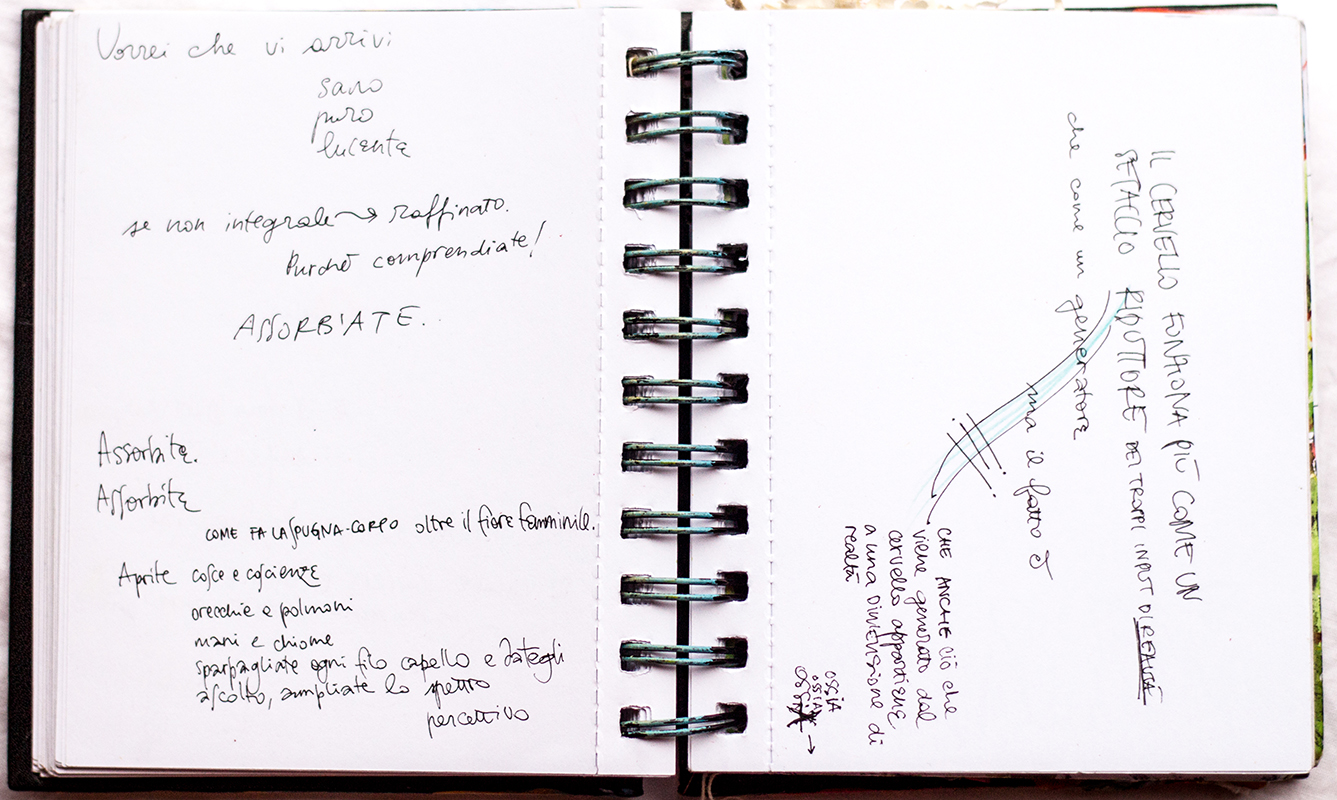 Vorrei che vi arrivi
sano
puro
lucente
se non integrale → Raffinato.
Purché comprendiate!
ASSORBIATE..
Assorbite.
Assorbite
COME FA LA SPUGNA-CORPO oltre il fiore femminile.
Aprite cosce e coscienze
orecchie e polmoni
mani e chiome
sparpagliate ogni filo capello e dategli
ascolto, ampliate lo spettro
percettivo
IL CERVELLO FUNZIONA PIÙ COME UN
SETACCIO RIDUTTORE DEI TROPPI INPUT DI REALTÀ
che come un generatore
ma il fatto è
CHE ANCHE ciò che
viene generato dal
cervello appartiene
a una DIMENSIONE di
realtà
OSSIA
OSSIA
OSSIA →